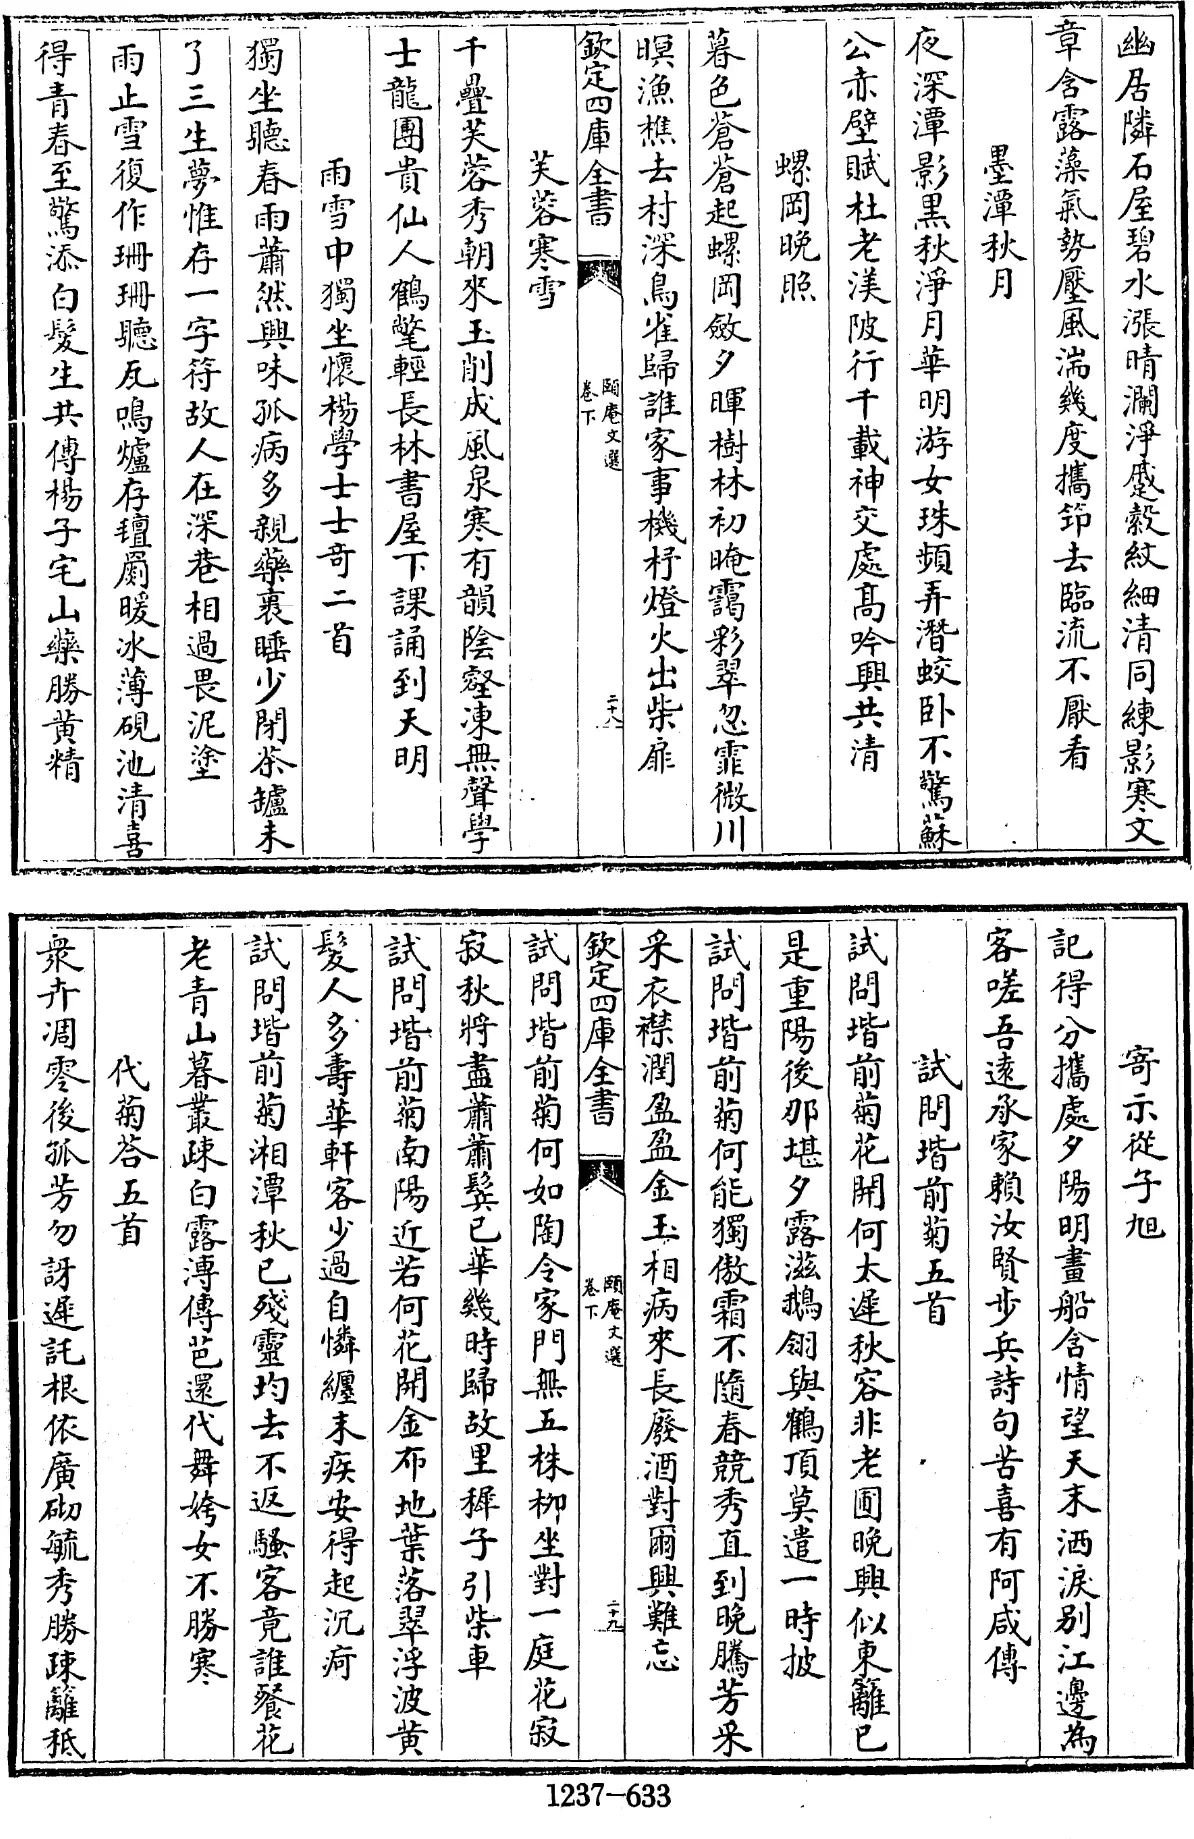 幽居隣石屋碧水漲晴瀾淨蹙縠紋細清同練影寒文
章含露藻氣勢壓風湍幾度攜笻去臨流不厭看
墨潭秋月
夜深潭影黒秋淨月華明游女珠頻弄潛蛟卧不驚蘇
公赤壁賦杜老渼陂行千載神交處髙吟興共清
螺岡晚照
暮色蒼蒼起螺岡斂夕暉樹林初晻靄彩翠忽霏微川
暝漁樵去村深鳥雀歸誰家事機杼燈火出柴扉
欽定四庫全書
頤庵文選
卷下
二十八
芙蓉寒雪
千疊芙蓉秀朝來玉削成風泉寒有韻陰壑凍無聲學
士龍團貴仙人鶴氅輕長林書屋下課誦到天明
雨雪中獨坐懷楊學士士奇二首
獨坐聽春雨蕭然興味孤病多親藥裹睡少閉茶罏未
了三生夢惟存一字符故人在深巷相過畏泥塗
雨止雪復作珊珊聽瓦鳴爐存氊罽暖冰薄硯池清喜
得青春至驚添白髮生共傳楊子宅山藥勝黄精
寄示從子旭
記得分攜處夕陽明畫船含情望天末洒淚别江邊為
客嗟吾逺承家賴汝賢步兵詩句苦喜有阿咸傳
試問堦前菊五首
試問堦前菊花開何太遲秋容非老圃晚興似東籬已
是重陽後那堪夕露滋鵝翎與鶴頂莫遣一時披
試問堦前菊何能獨傲霜不隨春競秀直到晚騰芳采
采衣襟潤盈盈金玉相病來長廢酒對爾興難忘
欽定四庫全書
頤庵文選
卷下
二十九
試問堦前菊何如陶令家門無五株栁坐對一庭花寂
寂秋將盡蕭蕭鬢已華幾時歸故里稺子引柴車
試問堦前菊南陽近若何花開金布地葉落翠浮波黄
髮人多壽華軒客少過自憐纏末疾安得起沉疴
試問堦前菊湘潭秋已殘靈均去不返騷客竟誰飱花
老青山暮叢疎白露漙傳芭還代舞姱女不勝寒
代菊答五首
衆卉凋零後孤芳勿訝遲託根依廣砌毓秀勝疎籬秪
1237-633